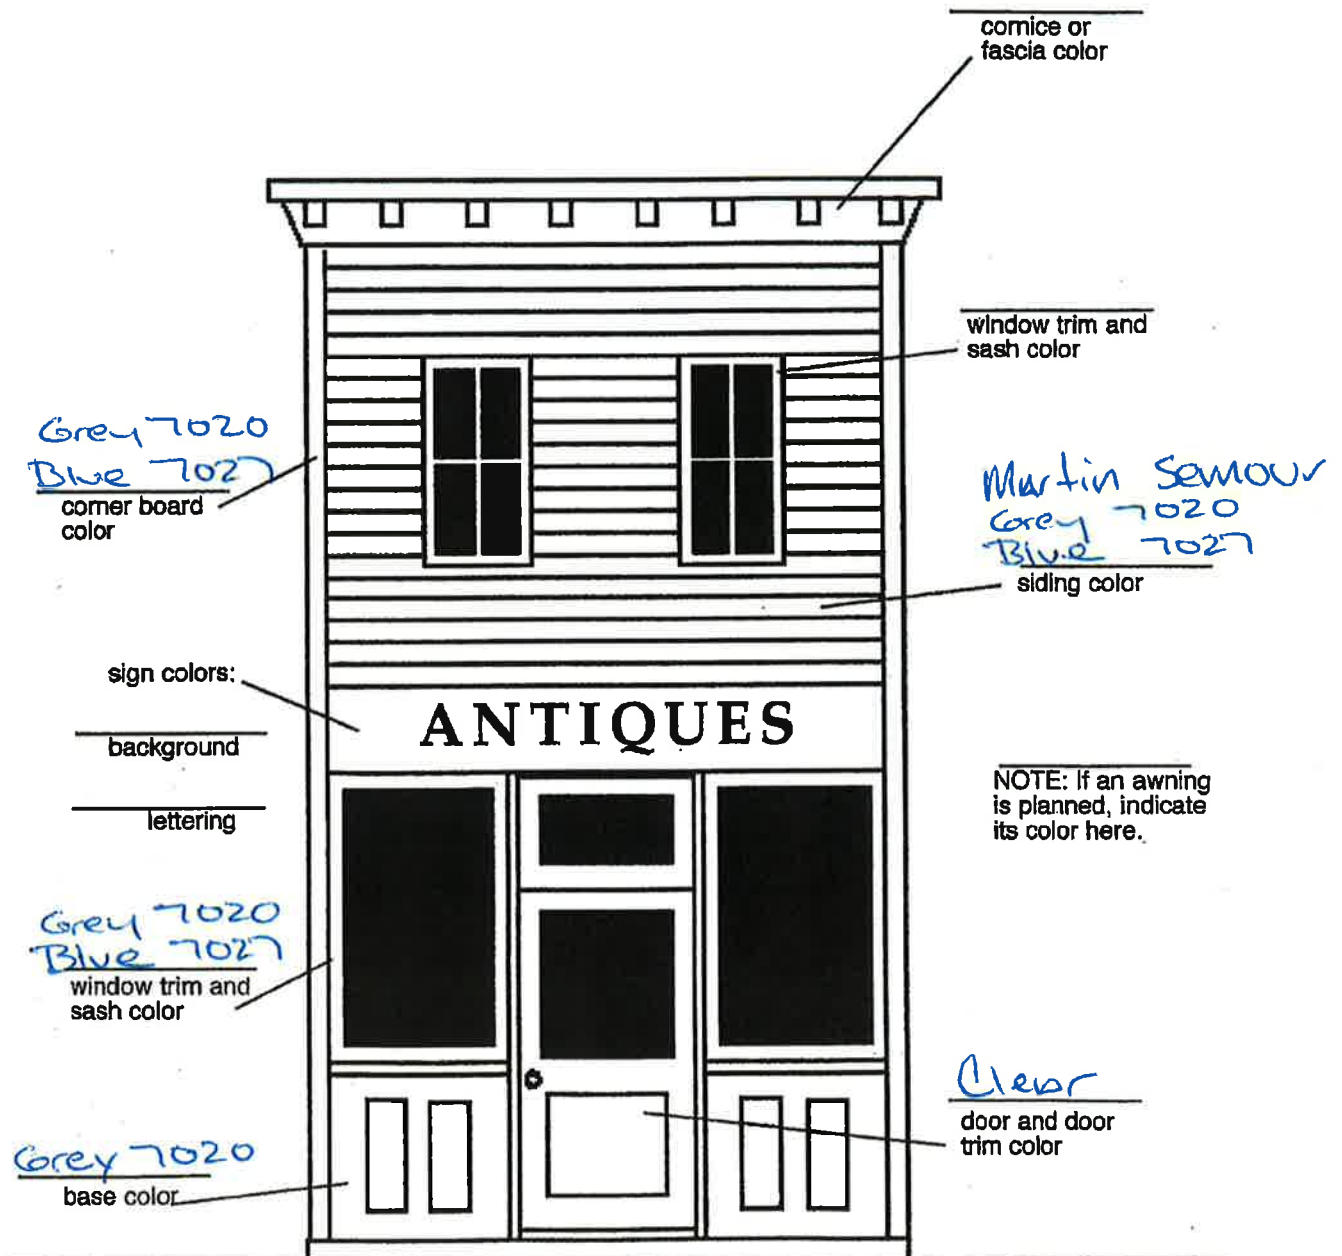 cornice or
fascia color
window trim and
sash color
Grey 7020
Blue 7027
corner board
color
Martin Semour
Grey 7020
Blue 7027
siding color
sign colors:
background
lettering
ANTIQUES
NOTE: If an awning
is planned, indicate
its color here.
Grey 7020
Blue 7027
window trim and
sash color
Clear
door and door
trim color
Grey 7020
base color